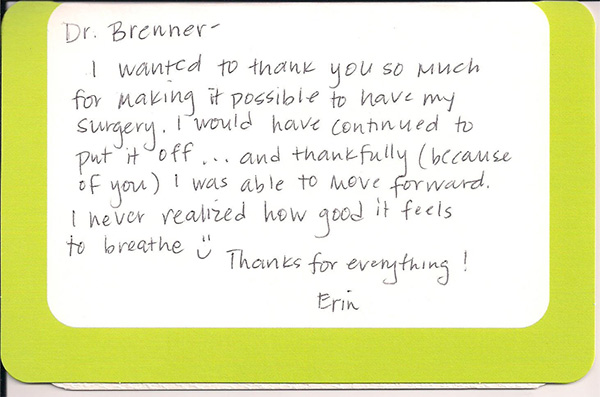 Dr. Brenner-
I wanted to thank you so much
for making it possible to have my
surgery. I would have continued to
put it off... and thankfully (because
of you) I was able to move forward.
I never realized how good it feels
to breathe ü
Thanks for everything!
Erin